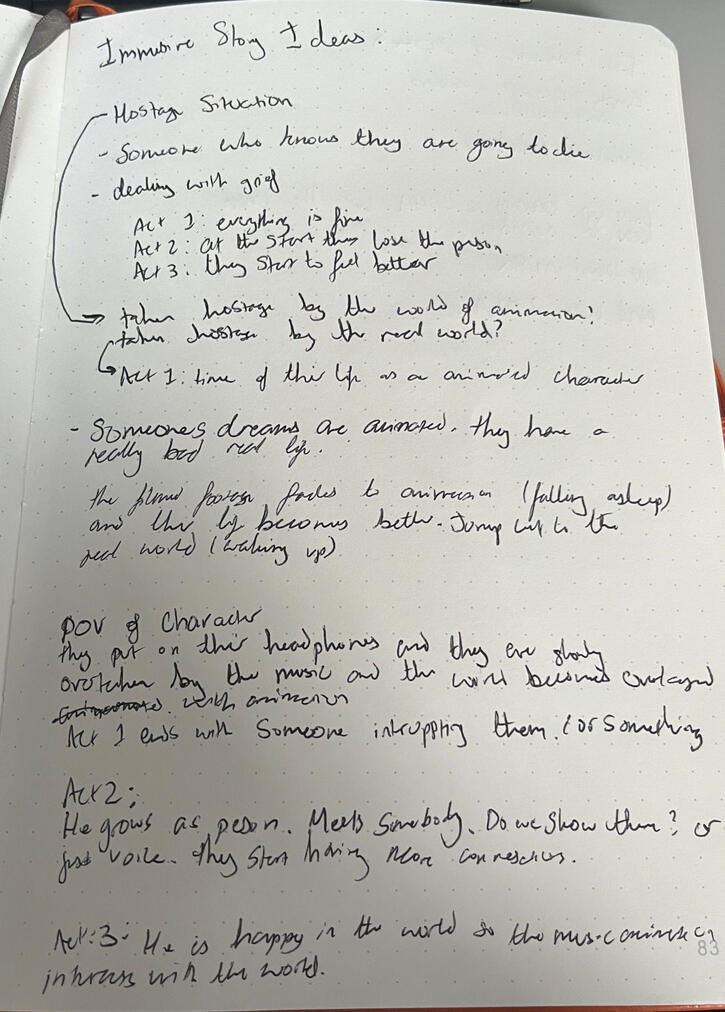 Immersive Story Ideas:
- Hostage Situation
- Someone who knows they are going to die
- dealing with grief
Act 1: everything is fine
Act 2: at the start they lose the person
Act 3: they start to feel better
taken hostage by the world of animation?
taken hostage by the real world?
Act 1: time of their life as a animated character
- Someones dreams are animated. they have a
really bad real life.
the filmed footage fades to animation (falling asleep)
and their life becomes better. Jump cut to the
real world (waking up)
POV of character
they put on their headphones and they are slowly
overtaken by the music and the world becomes overlayed
with animation
Act 1 ends with someone intruppting them. (or something
Act 2:
He grows as person. Meets somebody. Do we show them? or
just voice. they start having more connections.
Act:3: He is happy in the world so the music animation
interacts with the world.
83